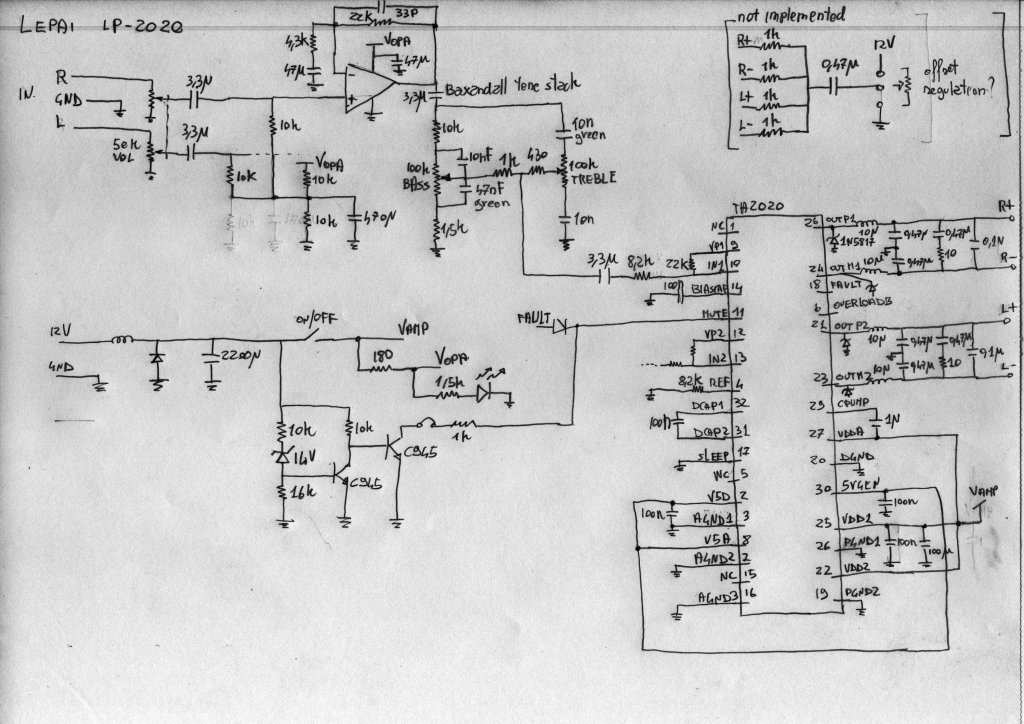 LEPAI LP-2020
22K 33P
4,3K
47µ
VOPA
47µ
-
+
IN.
R
GND
L
50k
VOL
3,3µ
3,3µ
10k
10K
VOPA
10k
10k
470µ
10k
3,3µ
Baxandall Tone stack
10k
100k
BASS
10nF
47nF
green
1k
430
1,5k
10n
green
100k
TREBLE
10n
not implemented
R+ 1k
R- 1k
L+ 1k
L- 1k
0,47µ
12V
offset
regulation?
3,3µ
8,2k
22k
100n
TA2020
NC 1
VP1 9
IN1 10
BIASCAP 14
MUTE 11
VP2 12
IN2 13
8,2K REF 4
DCAP1 32
100n
DCAP2 31
SLEEP 17
NC 5
V5D 2
100n
AGND1 3
V5A 8
AGND2 2
NC 15
AGND3 16
26 OUTP1
1N5817
10µ
0,47µ
0,47µ
10
0,1µ
R+
24 OUTM1
10µ
0,47µ
R-
18 FAULT
6 OVERLOADB
21 OUTP2
10µ
0,47µ
0,47µ
10
0,1µ
L+
23 OUTM2
10µ
0,47µ
L-
29 CPUMP
1µ
27 VDDA
20 DGND
30 5VGEN
100n
VAMP
25 VDD1
100n
100µ
26 PGND1
22 VDD2
19 PGND2
12V
GND
2200µ
ON/OFF
VAMP
180
VOPA
1,5k
FAULT
10k
14V
16k
10k
C945
C945
1k